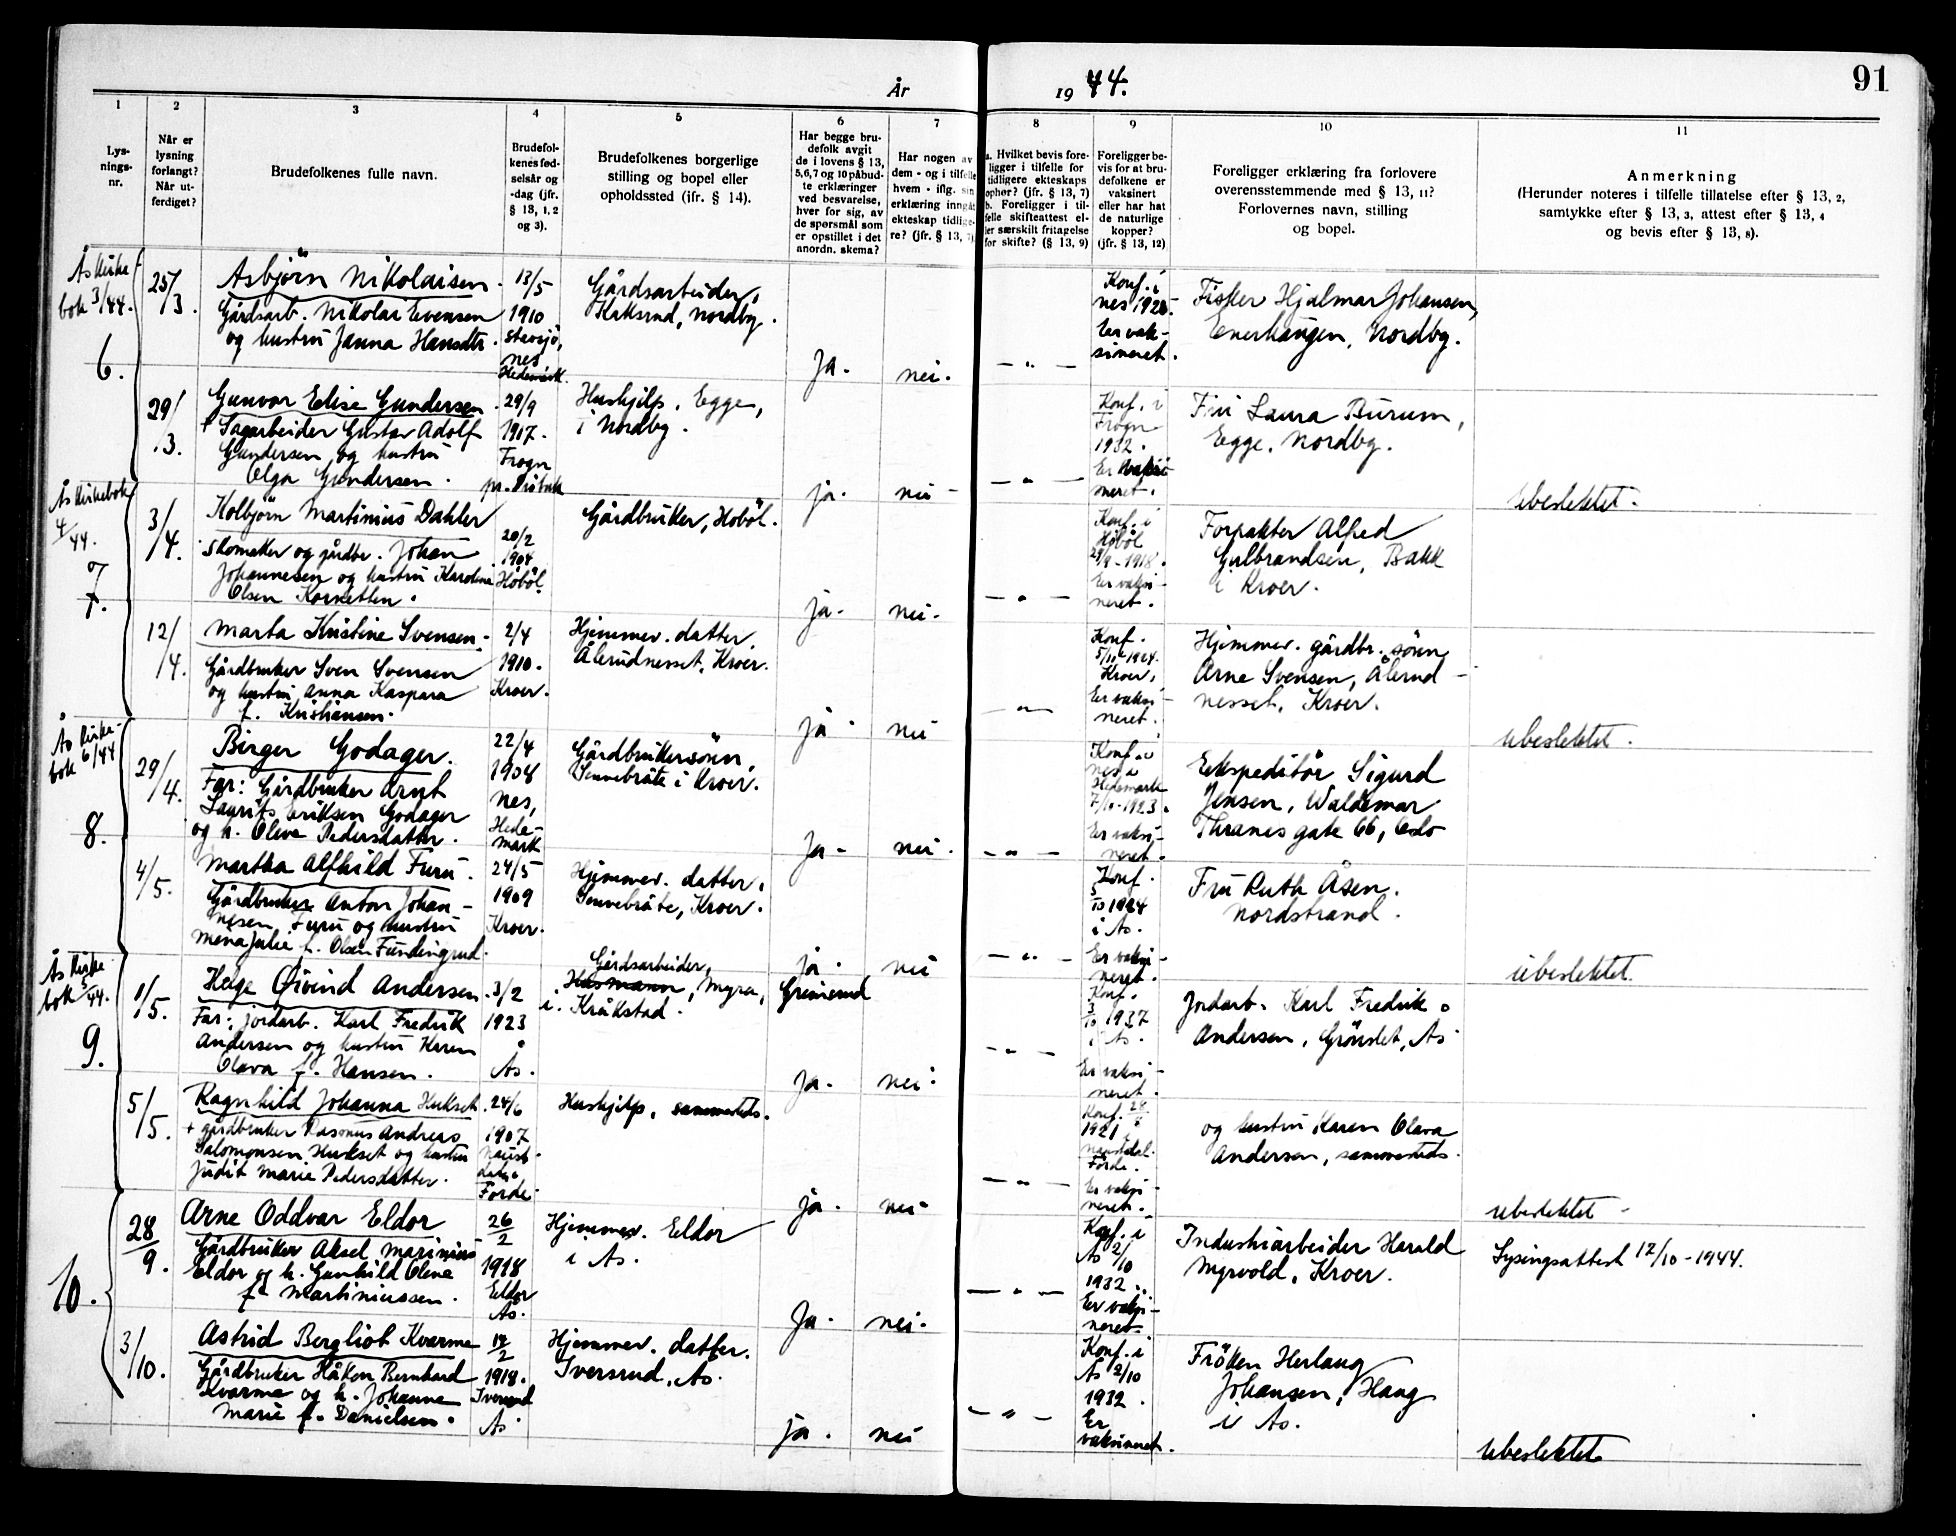 År 1944.
91
1
2
3
4
5
6
7
8
9
10
11
Lys-
nings-
nr.
Når er
lysning
forlangt?
Når ut-
ferdiget?
Brudefolkenes fulle navn.
Brudefol-
kenes fød-
selsår og
-dag (jfr.
§ 13, 1, 2
og 3).
Brudefolkenes borgerlige
stilling og bopel eller
opholdssted (jfr. § 14).
Har begge bru-
defolk avgit
de i lovens § 13,
5, 6, 7 og 10 påbud-
te erklæringer
ved besvarelse,
hver for sig, av
de spørsmål som
er opstillet i det
anordn. skema?
Har nogen av
dem - og i tilfelle
hvem - iflg. sin
erklæring inngåt
ekteskap tidlige-
re? (jfr. § 13, 7)
a. Hvilket bevis fore-
ligger i tilfelle for
tidligere ekteskaps
ophør? (jfr. § 13, 7)
b. Foreligger i til-
felle skifteattest el-
ler særskilt fritagelse
for skifte? (§ 13, 9)
Foreligger be-
vis for at bru-
defolkene er
vaksinert
eller har hat
de naturlige
kopper?
(jfr. § 13, 12)
Foreligger erklæring fra forlovere
overensstemmende med § 13, 11?
Forlovernes navn, stilling
og bopel.
Anmerkning
(Herunder noteres i tilfelle tillatelse efter § 13, 2,
samtykke efter § 13, 3, attest efter § 13, 4
og bevis efter § 13, 8).
Ås Kirke-
bok 3/44.
6.
25/3.
Asbjörn Nikolaisen.
Gårdsarb. Nikolai Evensen
og hustru Janna Hansdtr.
13/5
1910
Stavsjö,
Nes
Hedemark.
Gårdsarbeider,
Nordby.
Ja.
nei.
- " -
Konf. i
Nes 192
Er vak-
sineret.
Fisker Hjalmar Johansen,
Enerhaugen, Nordby.
29/3.
Gunvor Elise Gundersen
Sagarbeider Gustav Adolf
Gundersen og hustru
Olga Gundersen.
29/9
1917.
Frogn
pr. Dröbak
Hushjelp, Egge,
i Nordby.
ja.
nei -
- " -
Konf. i
Frogn
1932.
Er vaksi-
neret.
Fru Laura Burum,
Egge, Nordby.
Ubeslektet.
Ås Kirkebok
4/44.
7.
3/4.
Kolbjörn Martinius Dahler
Skomaker og gårdbr. Johan
Johannesen og hustru Karoline
Olsen
20/2
1904
Höböl.
Gårdbruker, Höböl.
ja.
nei.
- " -
Konf. i
Höböl
29/9 - 1918.
Er vaksi-
neret.
Forpakter Alfred
Gulbrandsen, Bakk
i Kroer.
12/4.
Marta Kristine Svensen.
Gårdbruker Sven Svensen
og hustru Anna Kaspara
f. Kristiansen.
2/4
1910.
Kroer.
Hjemmev. datter
Ålerudnesset, Kroer.
ja.
nei
- " -
Konf.
5/10 - 1924.
Kroer,
Er vaksi-
neret.
Hjemmev. gårdbr. sönn
Arne Svensen, Ålerud-
nesset, Kroer.
Ubeslektet.
Ås Kirke-
bok 6/44
8.
29/4.
Birger Godager.
Far: Gårdbruker Arnt
Laurits Eriksen Godager
og h. Oleva Pedersdatter.
22/4
1908
Nes,
Hede-
mark
Gårdbrukersönn,
Sennebråte i Kroer.
Ja -
nei.
- " -
Konf. i
Nes i
Hedemark
7/10 - 1923.
Er vaksi-
neret.
Ekspeditör Sigurd
Jensen, Waldemar
Thranes gate 66, Oslo
4/5.
Martha Alfhild Furu.
Gårdbruker Anton Johan-
nesen Furu og hustru
Mena Julie f. Olsen Fundingrud.
24/5
1909
Kroer.
Hjemmev. datter,
Sennebråte, Kroer.
ja.
nei
- " -
Konf.
5/10 1924
i Ås.
Er vaksi-
neret.
Fru Ruth Åsen.
Nordstrand.
Ubeslektet.
Ås Kirke
bok 5/44.
9.
1/5.
Helge Öivind Andersen
Far: jordarb. Karl Fredrik
Andersen og hustru Karen
Olava f. Hansen.
3/2
1923
Ås.
Gårdsarbeider,
Husmann, Myra, Grinerud
i Kråkstad.
Ja.
nei.
- " -
Konf.
3/10 1937
i Ås.
Er vaksi-
neret.
Jordarb. Karl Fredrik
Andersen, Grönslet, Ås
5/5.
Ragnhild Johanna Hukset
+ gårdbruker Rasmus Andreas
Salomonsen Hukset og hustru
Judit Marie Pedersdatter.
24/6
1907
Naust-
dal,
Förde.
Hushjelp, sammesteds.
ja.
nei.
- " -
Konf.
1921 i
Naustdal.
Förde.
Er vaksi-
neret.
og hustru Karen Olava
Andersen, sammesteds.
Ubeslektet -
10.
28/9.
Arne Oddvar Eldor
Gårdbruker Aksel Marinius
Eldor og h. Gunhild Olene
f. Martiniussen.
26/2
1918
Eldor
Ås.
Hjemmev. Eldor
i Ås.
Ja.
nei.
- " -
Konf. i
Ås 2/10
1932.
Er vaksi-
neret.
Industriarbeider Harald
Myrvold, Kroer.
Lysingsattest 12/10 - 1944.
3/10.
Astrid Bergliot Kvarme
Gårdbruker Håkon Bernhard
Kvarme og h. Johanne
Marie f. Danielsen.
1918.
Iversrud
Ås
Hjemmev. datter.
Iversrud, Ås.
ja.
nei
- " -
Konf. i
Ås 2/10
1932.
Er
vaksineret.
Fröken Herlaug
Johansen, Haug
i Ås.
Ubeslektet